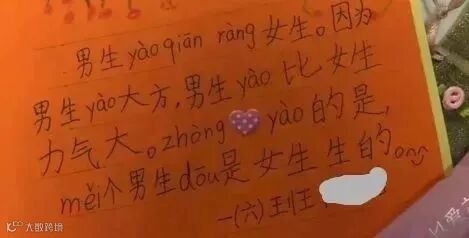 男生yào qiān ràng女生。因为
男生yào大方,男生yào比女生
力气大。zhòng yào的是,
měi个男生dōu是女生生的。
一(六)王
大数跨境